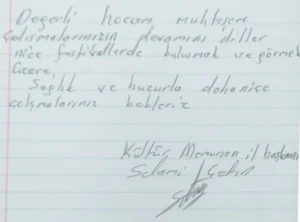 Değerli hocam muhteşem
çalışmalarınızın devamını diller
nice festivallerde bulusmak ve görmek
üzere,
Sağlık ve huzurla daha nice
çalışmalarınızı bekleriz
Kültür Memursen il başkanı
Selami Çekin